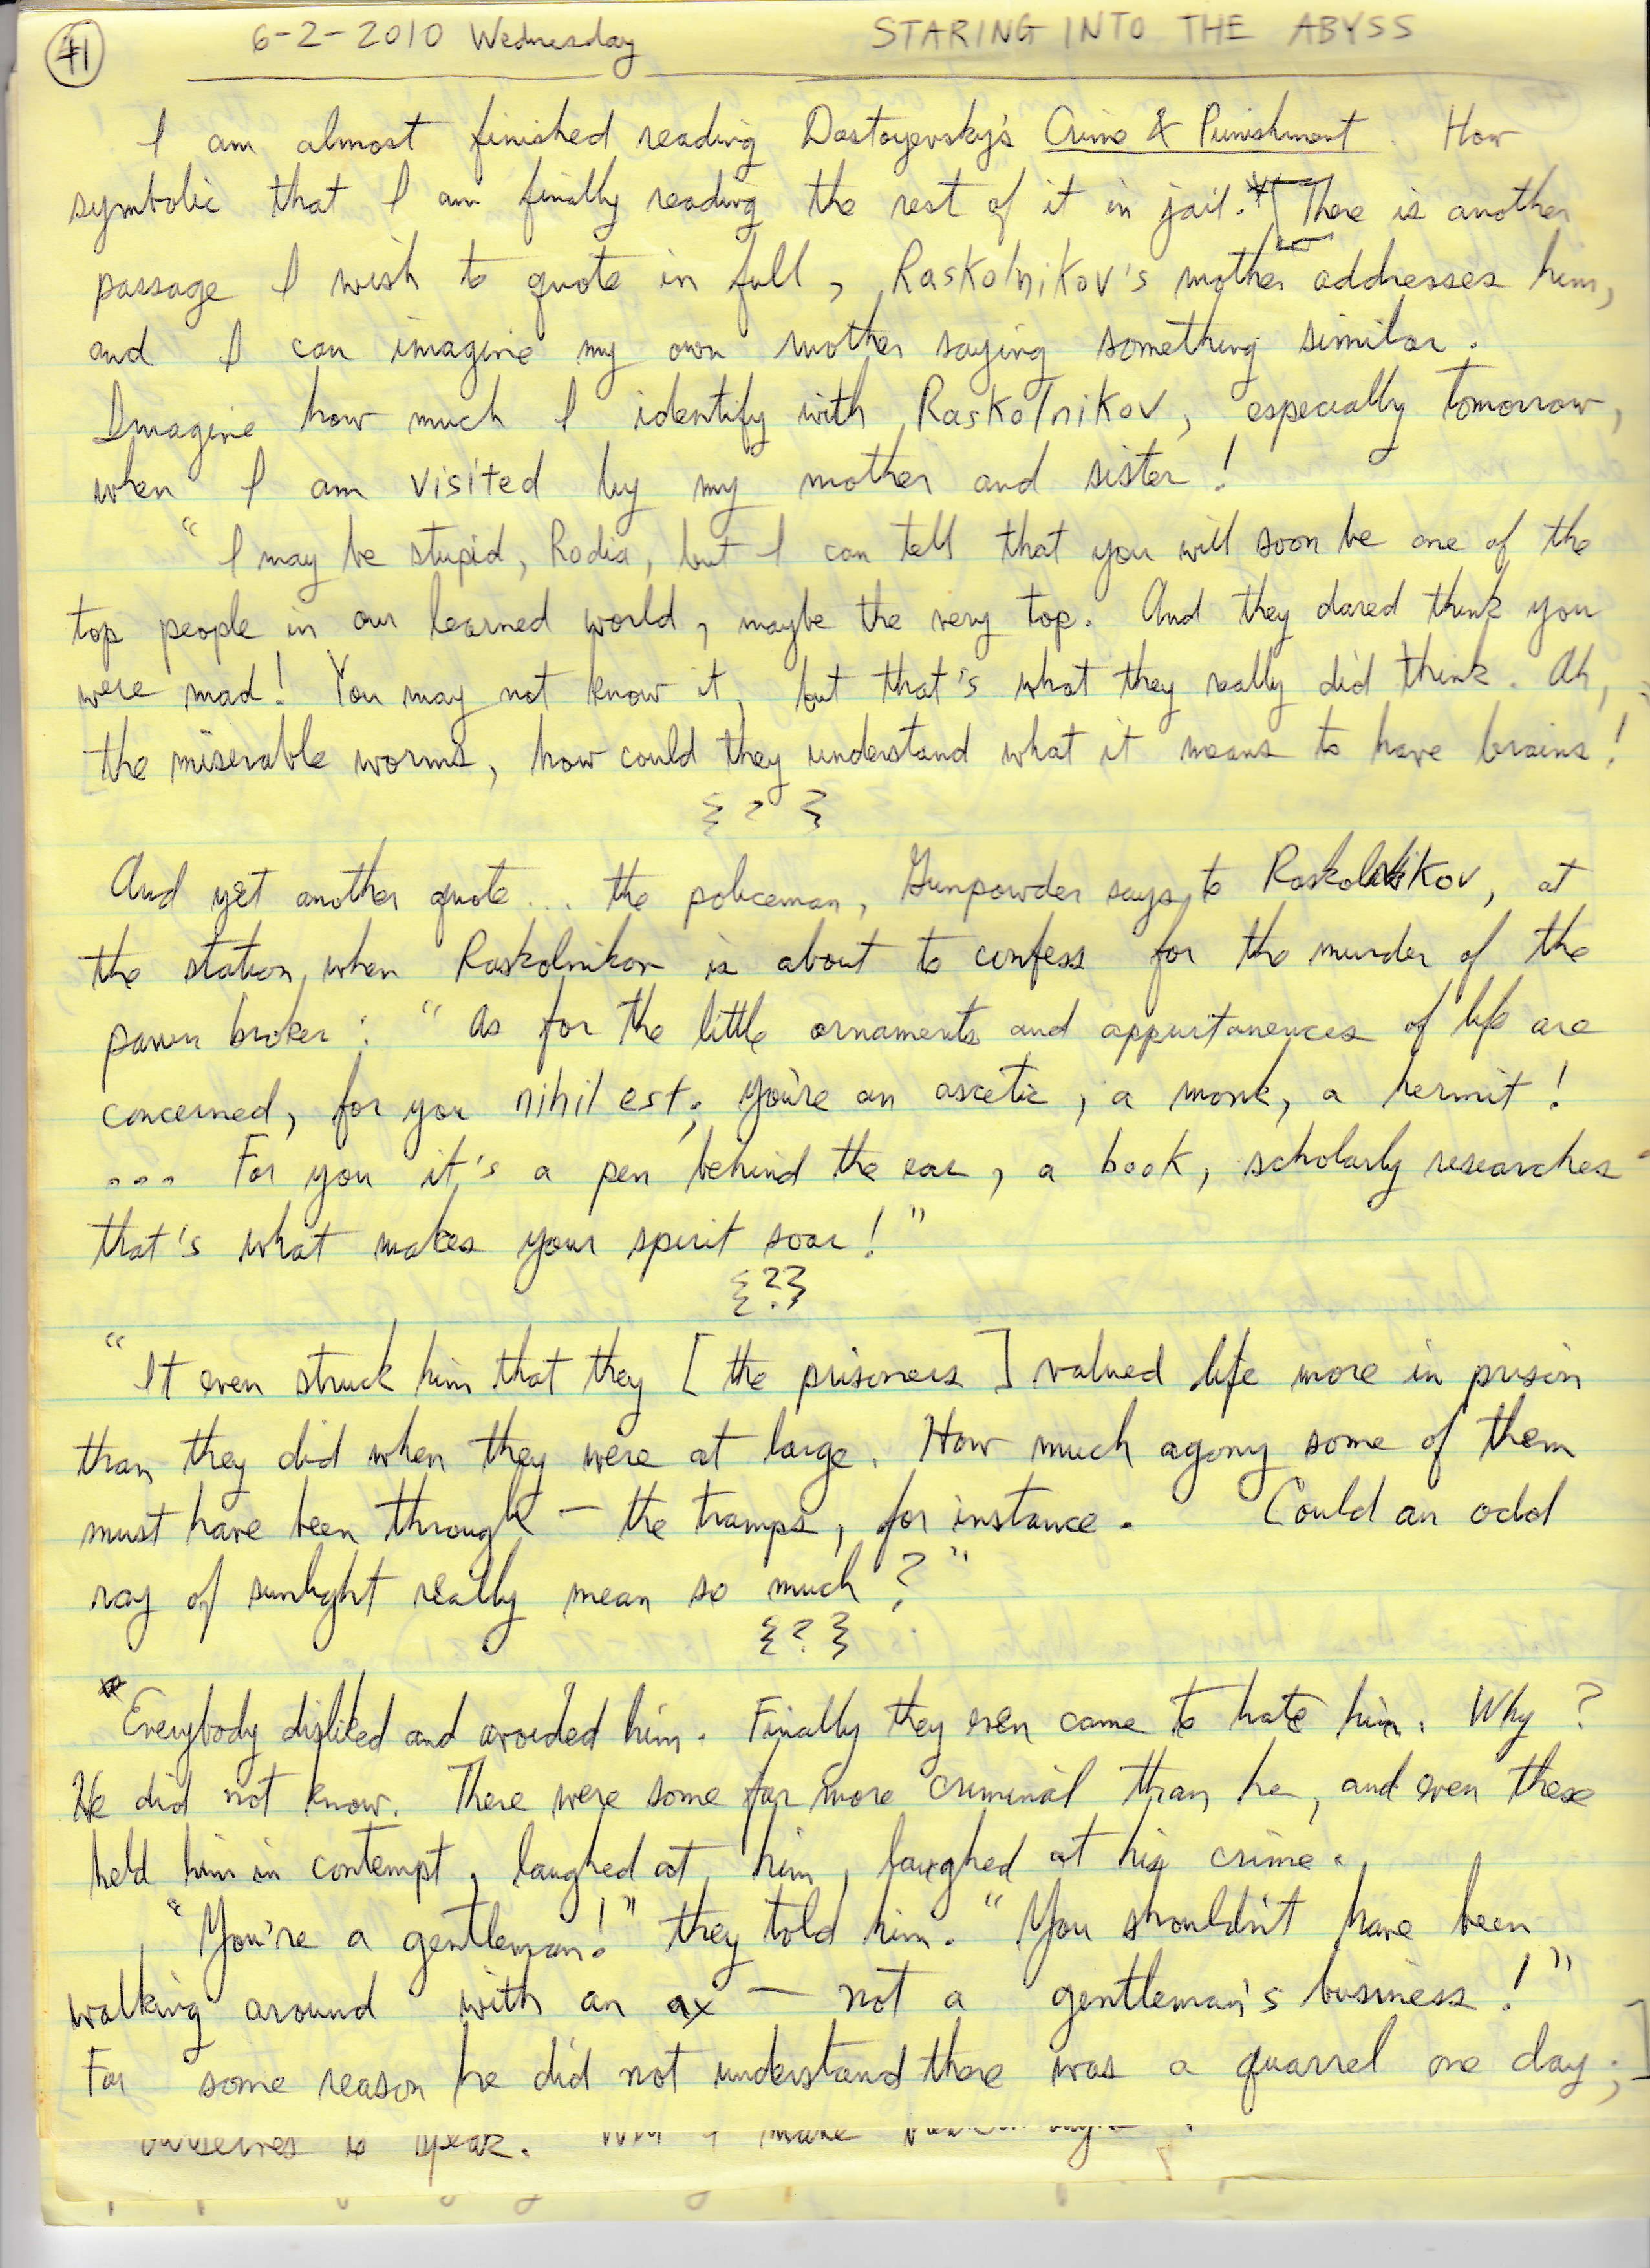 41 6-2-2010 Wednesday STARING INTO THE ABYSS
I am almost finished reading Dostoyevsky's Crime & Punishment. How
symbolic that I am finally reading the rest of it in jail.* There is another
passage I wish to quote in full, Raskolnikov's mother addresses him,
and I can imagine my own mother saying something similar.
Imagine how much I identify with Raskolnikov, especially tomorrow,
when I am visited by my mother and sister!
"I may be stupid, Rodia, but I can tell that you will soon be one of the
top people in our learned world, maybe the very top. And they dared think you
were mad! You may not know it, but that's what they really did think. Ah,
the miserable worms, how could they understand what it means to have brains!
{?}
And yet another quote... the policeman, Gunpowder says to Raskolnikov, at
the station, when Raskolnikov is about to confess for the murder of the
pawn broker: "As for the little ornaments and appurtanences of life are
concerned, for you nihil est; you're an ascetic, a monk, a hermit!
... For you it's a pen behind the ear, a book, scholarly researches -
that's what makes your spirit soar!"
{?}
"It even struck him that they [the prisoners] valued life more in prison
than they did when they were at large. How much agony some of them
must have been through — the tramps, for instance. Could an odd
ray of sunlight really mean so much?"
{?}
* Everybody disliked and avoided him. Finally they even came to hate him. Why?
He did not know. There were some far more criminal than he, and even these
held him in contempt, laughed at him, laughed at his crime.
"You're a gentleman!" they told him. "You shouldn't have been
walking around with an ax — not a gentleman's business!"
For some reason he did not understand there was a quarrel one day;]
ourselves to speak. I make